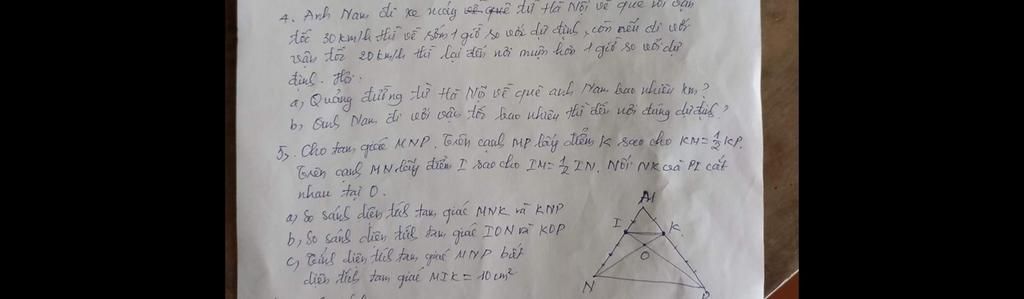 4. Anh Nam đi xe máy từ Hà Nội về quê với vận
tốc 30 km/h thì về sớm 1 giờ so với dự định, còn nếu đi với
vận tốc 20 km/h thì lại đến nơi muộn hơn 1 giờ so với dự
định. Hỏi:
a, Quãng đường từ Hà Nội về quê anh Nam bao nhiêu km?
b, Anh Nam đi với vận tốc bao nhiêu thì đến nơi đúng dự định?
5, Cho tam giác MNP. Trên cạnh MP lấy điểm K sao cho KM = 1/2 KP.
Trên cạnh MN lấy điểm I sao cho IM = 1/2 IN. Nối NK và PI cắt
nhau tại O.
a, So sánh diện tích tam giác MNK và KNP
b, So sánh diện tích tam giác ION và KOP
c, Tính diện tích tam giác MNP biết
diện tích tam giác MIK = 10 cm²
M
I K
O
N P